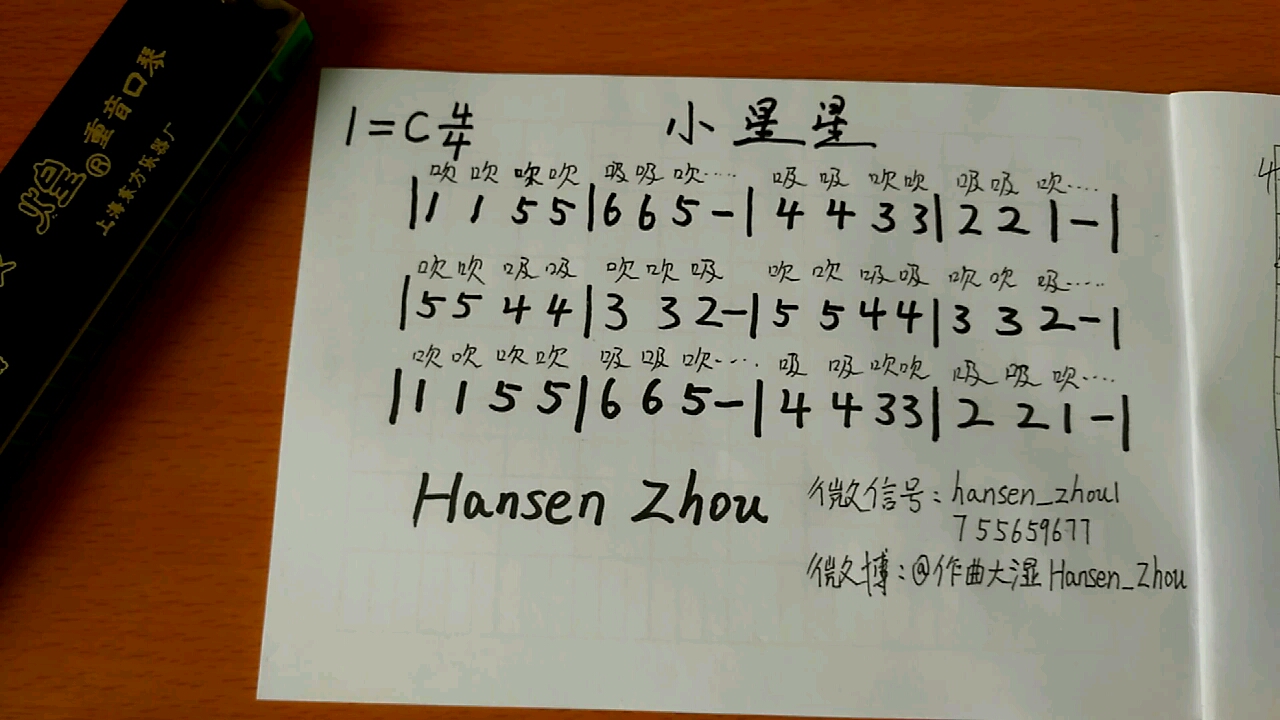 煌® 重音口琴
上海东方乐器厂
1=C 4/4 小星星
吹 吹 吹 吹 吸 吸 吹···· 吸 吸 吹 吹 吸 吸 吹····
|1 1 5 5|6 6 5 -|4 4 3 3|2 2 1 -|
吹 吹 吸 吸 吹 吹 吸 吹 吹 吸 吸 吹 吹 吸·····
|5 5 4 4|3 3 2 -|5 5 4 4|3 3 2 -|
吹 吹 吹 吹 吸 吸 吹···· 吸 吸 吹 吹 吸 吸 吹····
|1 1 5 5|6 6 5 -|4 4 3 3|2 2 1 -|
Hansen Zhou
微信号：hansen_zhou1
755659677
微博：@作曲大湿Hansen_Zhou